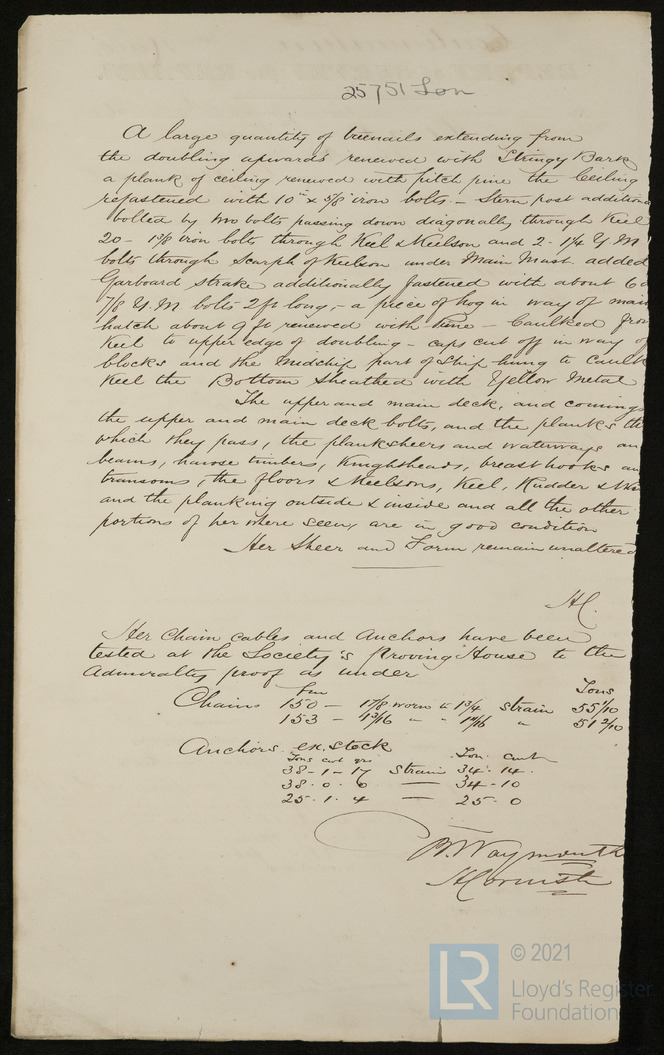 25751 Lon
A large quantity of treenails extending from
the doubling upwards renewed with Stringy Bark
a plank of ceiling renewed with pitch pine the Ceiling
refastened with 10" x 5/8 iron bolts - Stern post additiona
bolted by two bolts passing down diagonally through Keel
20 - 1 3/8 iron bolts through Keel & Keelson and 2 - 1 1/4 Y.M
bolts through Scarph of Keelson under Main Mast added
Garboard strake additionally fastened with about 60
7/8 Y.M bolts 2 ft long, - a piece of hog in way of main
hatch about 9 ft renewed with - Caulked from
Keel to upper edge of doubling - caps cut off in way of
blocks and the Midship part of Ship hung to Caulk
Keel the Bottom Sheathed with Yellow Metal
The upper and main deck, and comings
the upper and main deck bolts, and the planks th
which they pass, the planksheers and waterways an
beams, hawse timbers, Knightheads, breasthooks an
transoms, the floors & Keelsons, Keel, Rudder &
and the planking outside & inside and all the other
portions of her where seen, are in good condition
Her Sheer and Form remain unaltered
HC.
Her Chain cables and Anchors have been
tested at the Society's Proving House to the
Admiralty proof as under
Fms Tons
Chains 150 - 1 7/8 worn to 1 3/4 Strain 55 1/10
153 - 1 13/16 " " 1 11/16 " 51 2/10
Anchors. ex. stock
Tons cwt qrs Ton. cwt
38 - 1 - 17 Strain 34 . 14 .
38 . 0 . 6 — 34 - 10
25 . 1 . 4 — 25 . 0
B. Waymouth
H Cornish
LR © 2021
Lloyd's Register
Foundation